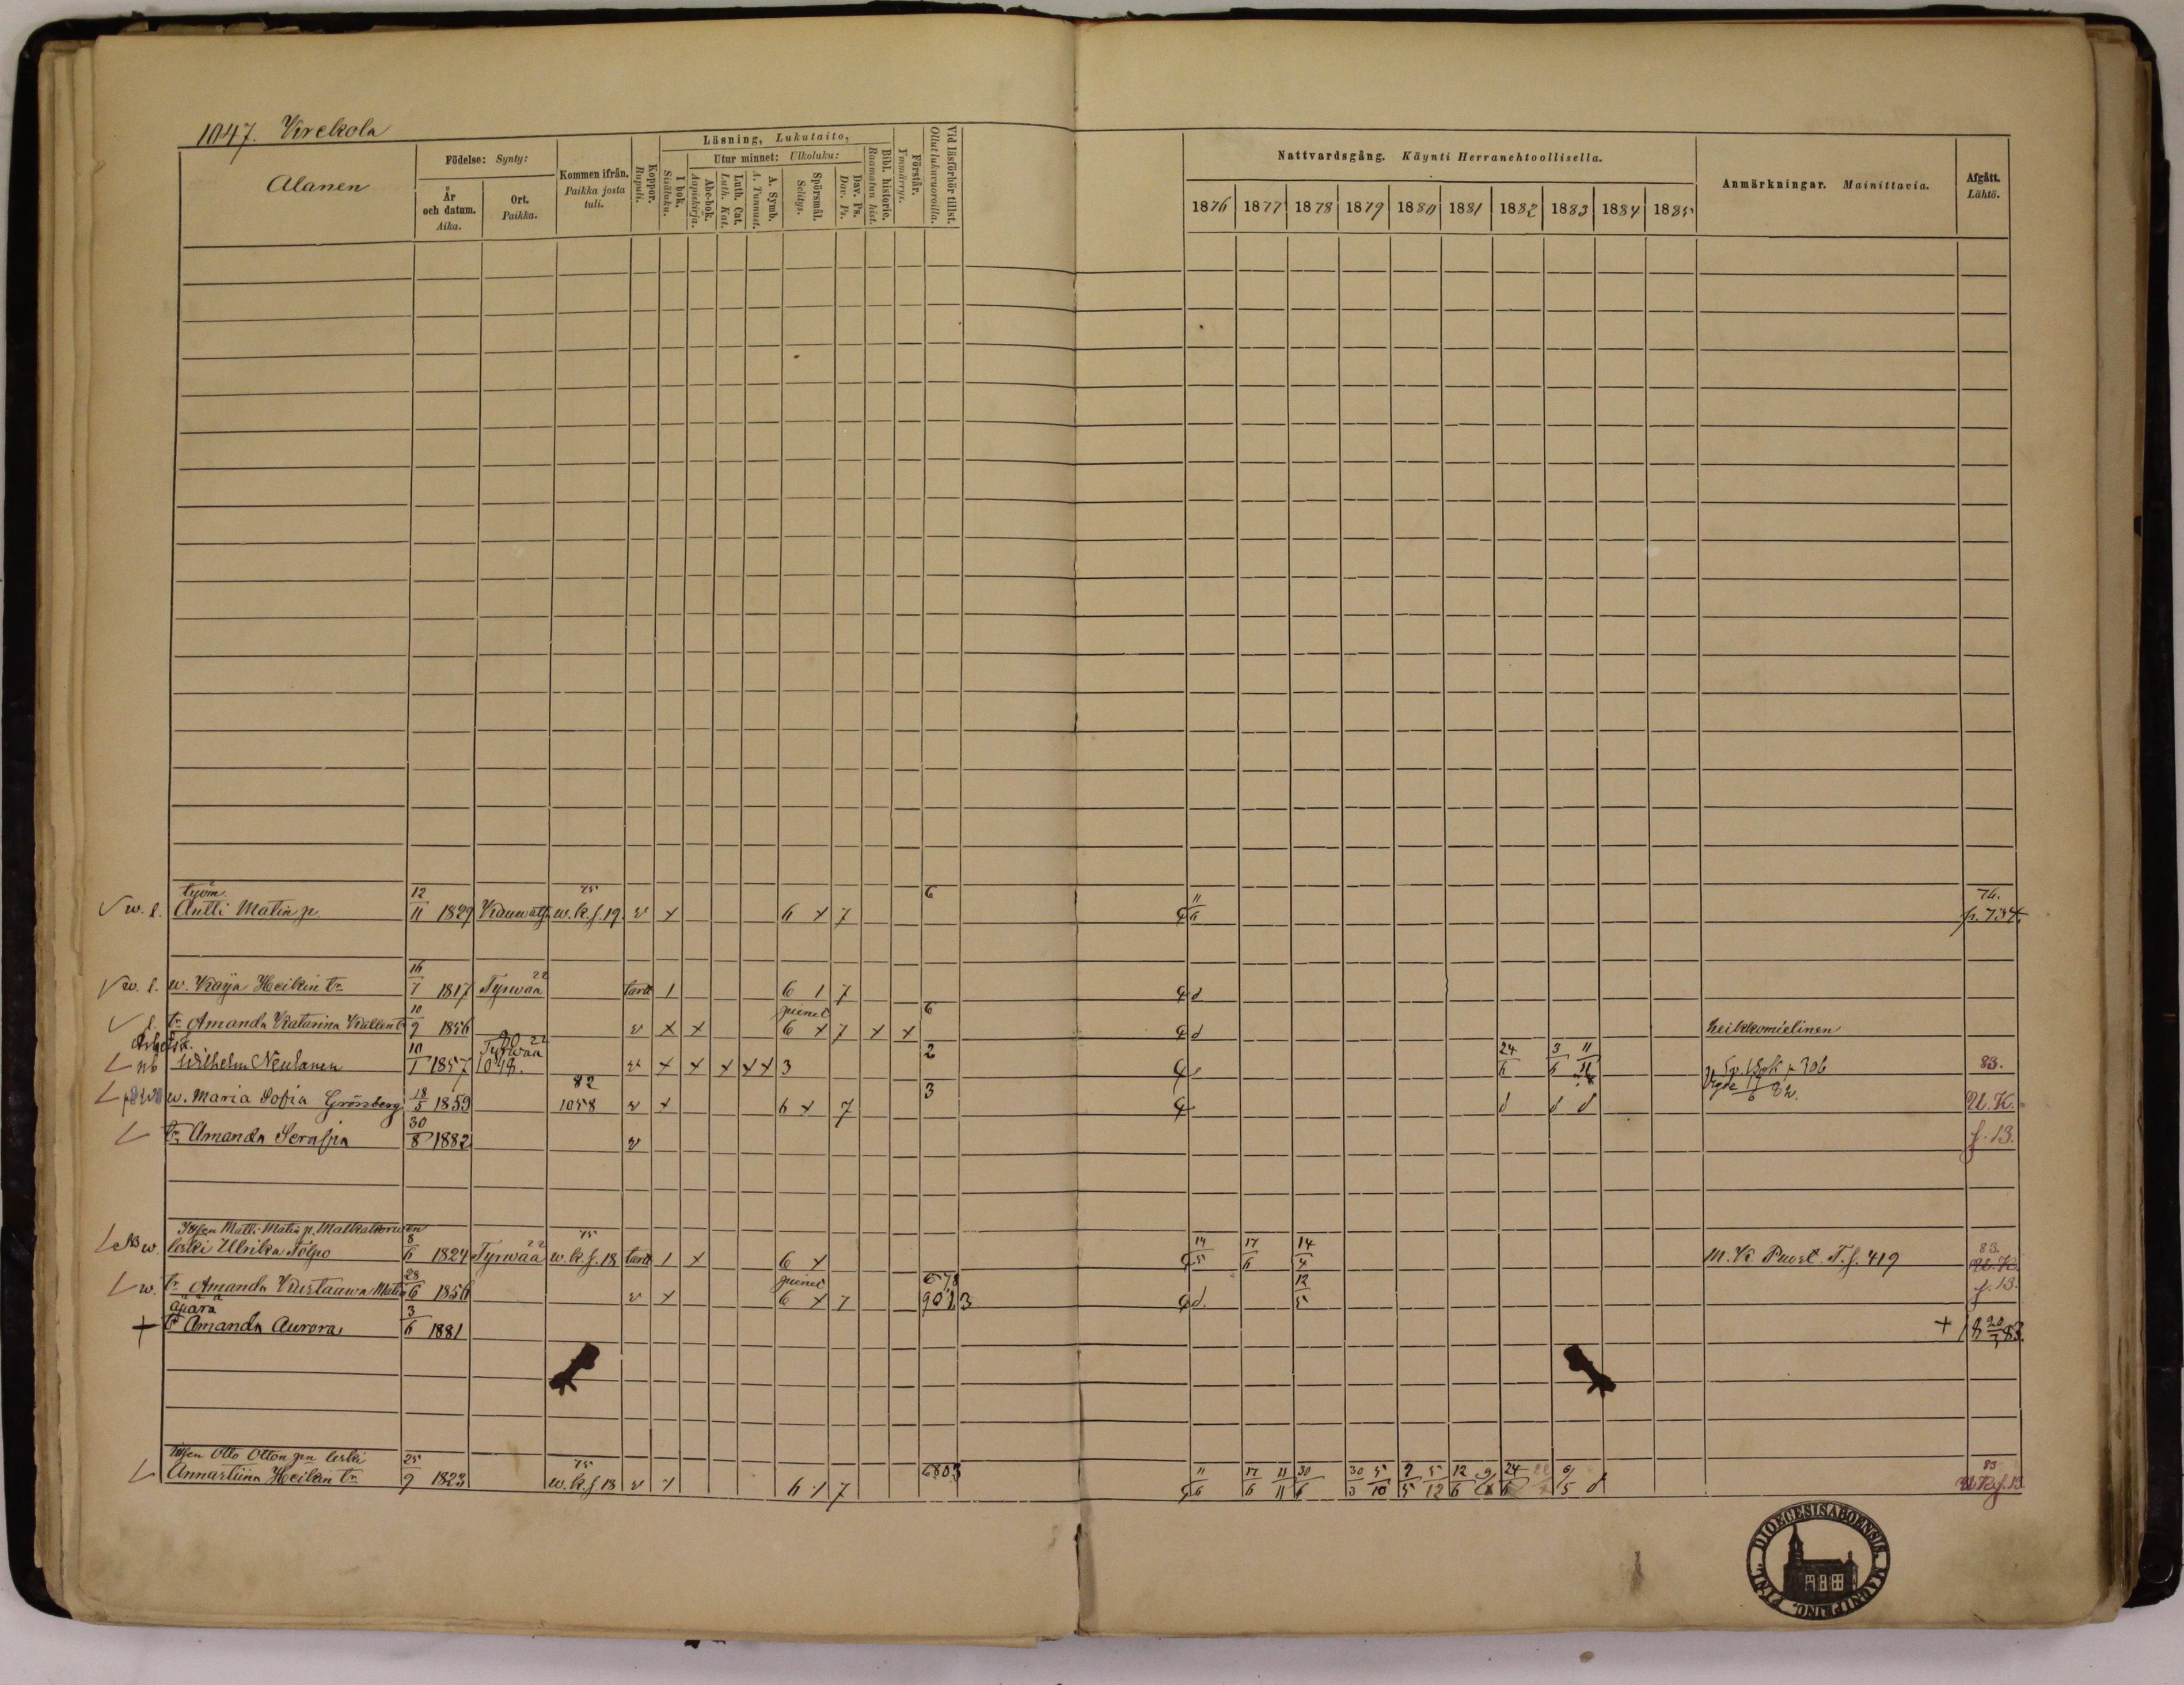 1047. Virekola
Alanen
Födelse: Synty:
År och datum. Aika.
Ort. Paikka.
Kommen ifrån. Paikka josta tuli.
Koppor. Rupuli.
Läsning, Lukutaito,
I bok. Sisäluku.
Utur minnet: Ulkoluku:
Abc-bok. Aapiskirja.
Luth. Cat. Luth. Kat.
A. Symb. A. Tunnust.
Spörsmål. Selitys.
Dav. Ps. Dav. Ps.
Bibl. historie. Raamatun hist.
Förstår. Ymmärrys.
Vid läsförhör tillst. Ollut lukuvuoroilla.
Nattvardsgång. Käynti Herranehtoollisella.
1876 1877 1878 1879 1880 1881 1882 1883 1884 1885
Anmärkningar. Mainittavia.
Afgått. Lähtö.
työm. 12 75 6 11 76.
w. l. Antti Matin p. 11 1829 w.k.s.19. v x 6 x 7 6 p. 734.
16 22
w. l. w. Kaija Heikin tr. 7 1817 Tyrwää 1 6 1 7 d
10 pienet 6
l. tr Amanda Katarina 9 1856 v x x 6 x 7 x x d heikkomielinen
10 Tyrwää 22 2 24 3 11
nb Wilhelm Neulanen 1 1857 1048. v x x x x x 3 6 6 11 83.
18 82 3
w. Maria Sofia Grönberg 5 1859 1058 v x 6 x 7 d d d U.K.
30
tr. Amanda Serafia 8 1882 v f. 13.
Itsen Matti Matin p.
8 22 75 14 17 14 83.
NB w. leski Ulrika 6 1824 Tyrwää w.k.s.18 1 x 6 x 5 6 4 M.K. T.s. 419 U.K.
28 pienet 678 12
w. tr Amanda Kustaawa Matin 6 1856 v x 6 x 7 d. 5 f. 13.
äpärä 3
+ tr Amanda Aurora 6 1881 + 20 7 83.
Itsen Otto Otton pn leski 25 75 6803 11 17 11 30 30 5 9 5 12 9 24 6 83
Annastiina Heikin tr. 9 1823 w.k.s.18 v 1 6 1 7 6 6 11 6 3 10 5 12 6 6 5 d U.K. f. 13
DIOECESIS ABOENSIS. MAGNI PRINC. FINL.